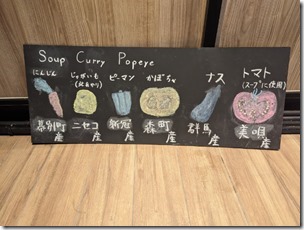 Soup Curry Popeye
にんじん
幕別町
産
じゃがいも
(北あかり)
ニセコ
産
ピーマン
新冠
産
かぼちゃ
森町
産
ナス
群馬
産
トマト
(スープに使用)
美唄
産